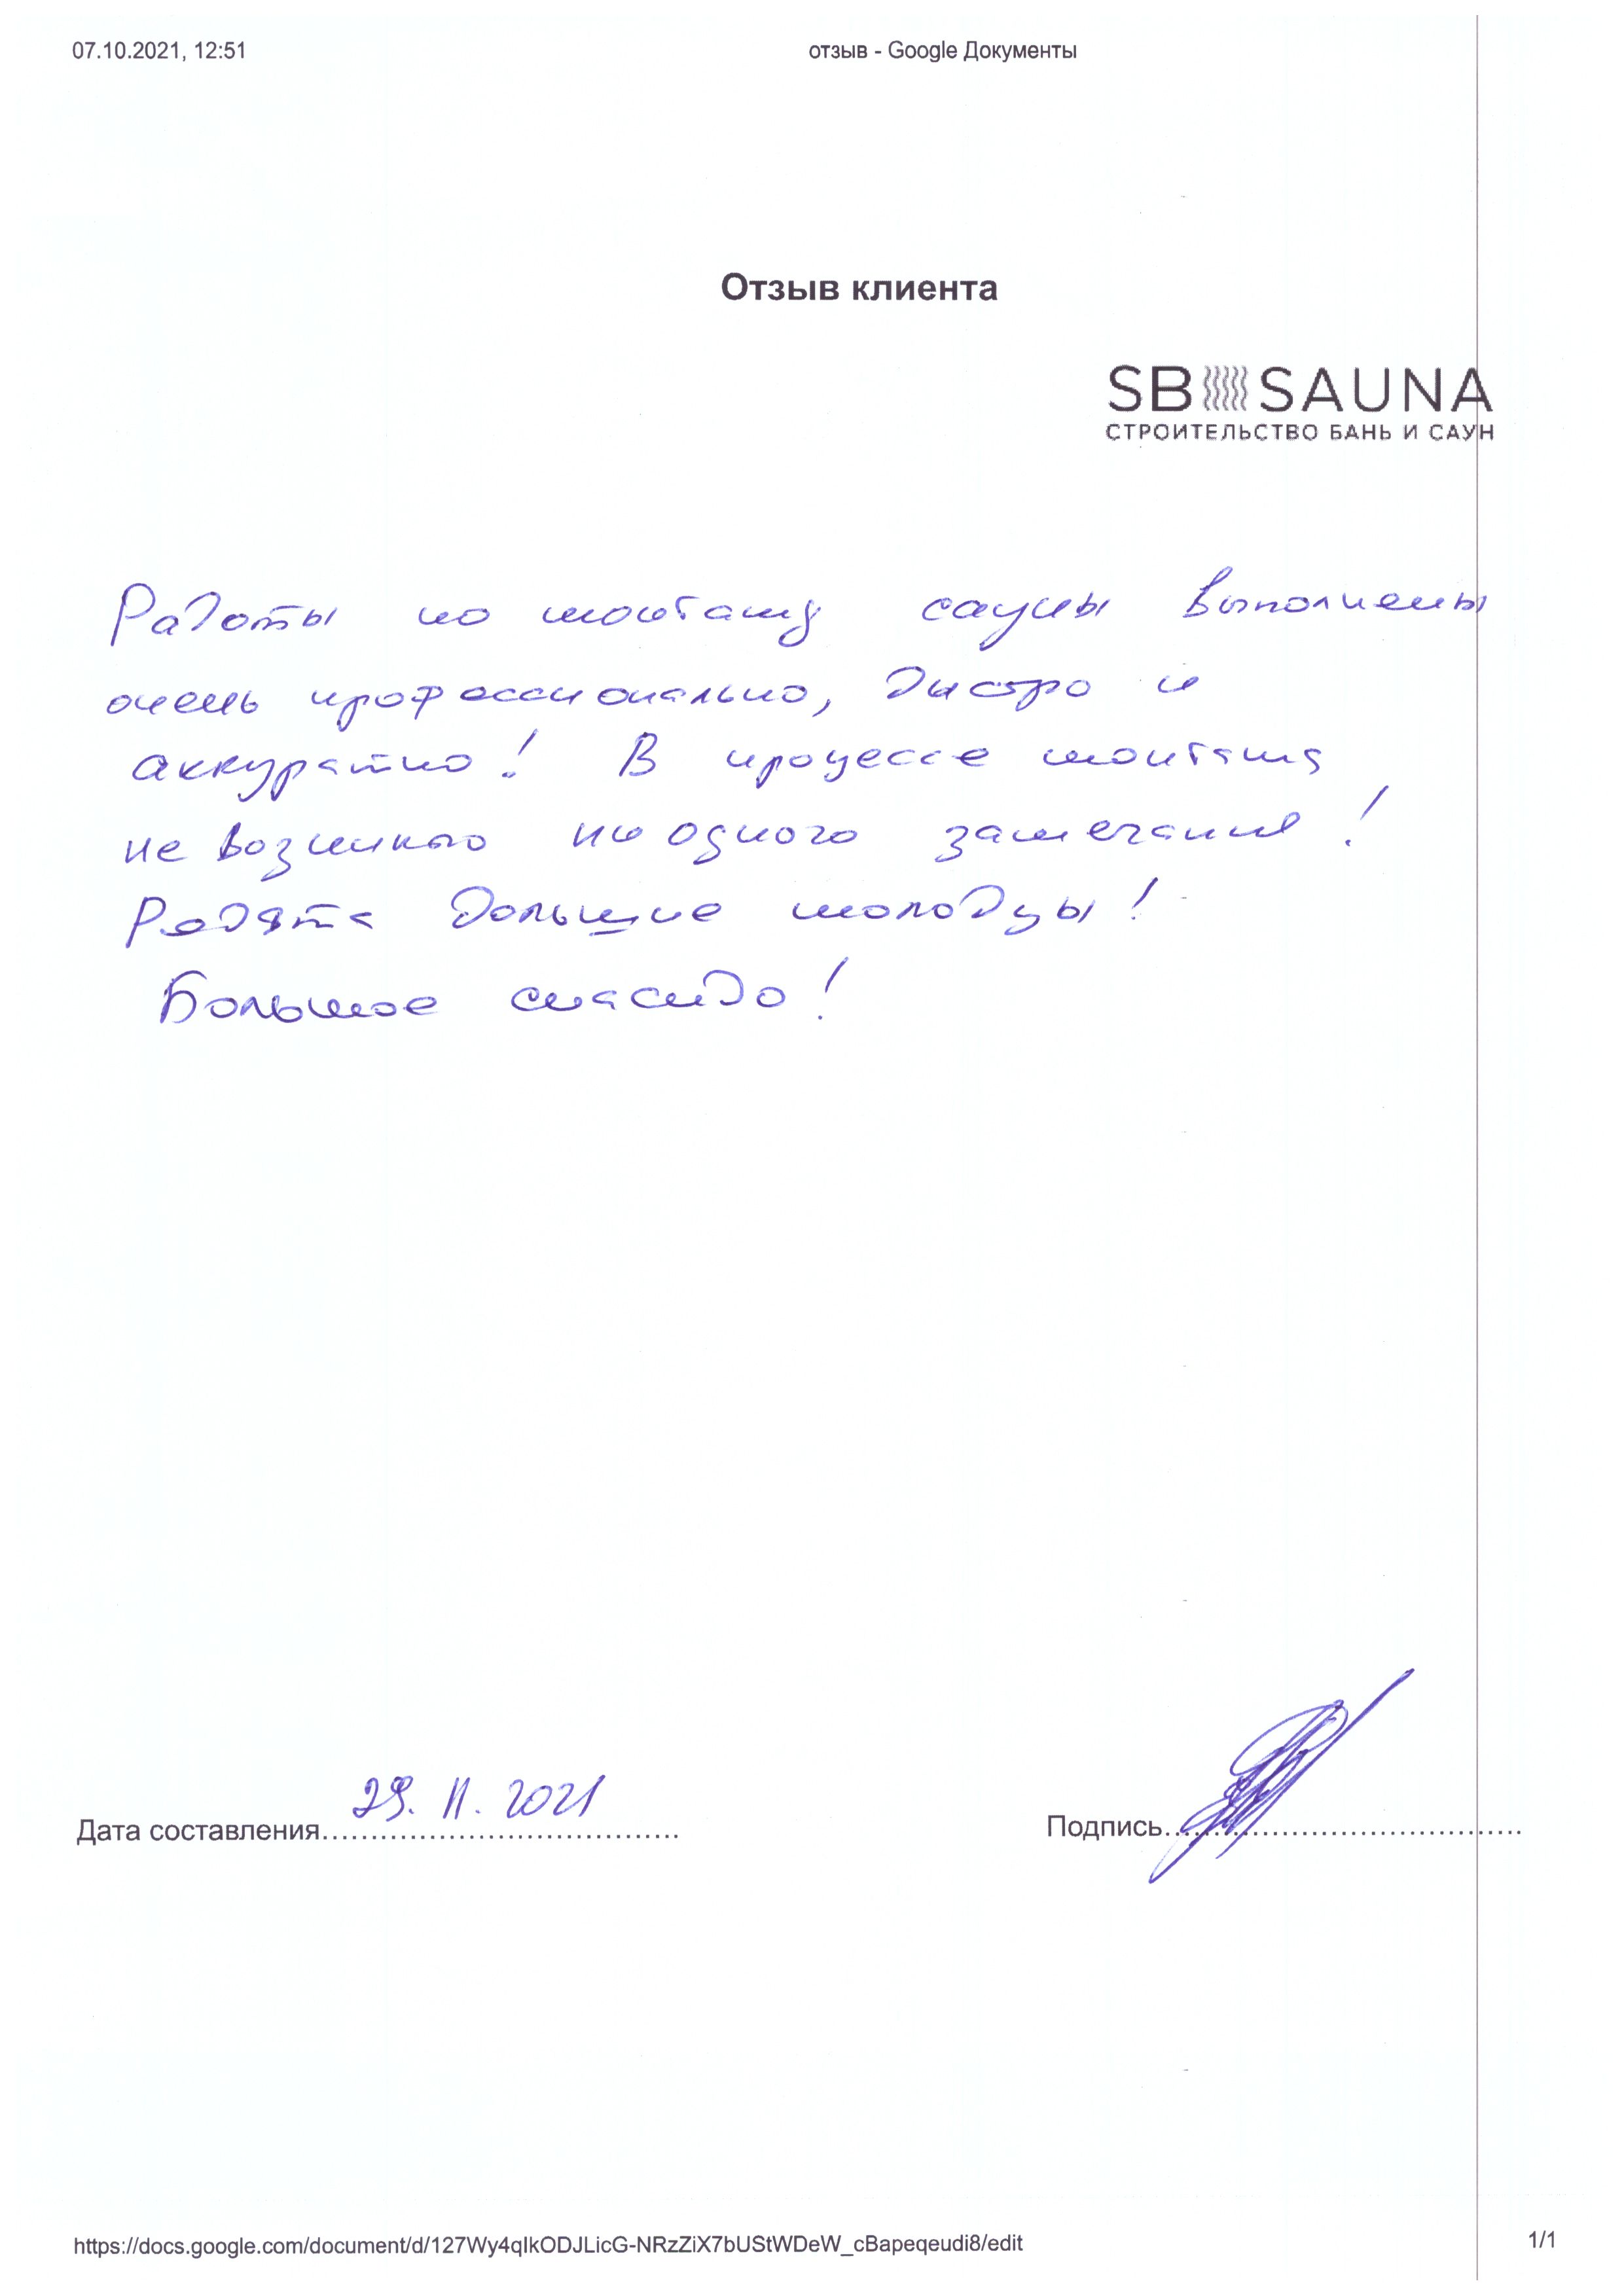 07.10.2021, 12:51 отзыв - Google Документы
Отзыв клиента
SB SAUNA
СТРОИТЕЛЬСТВО БАНЬ И САУН
Работы по монтажу сауны выполнены
очень профессионально, быстро и
аккуратно! В процессе монтажа
не возникло ни одного замечания!
Ребята большие молодцы!
Большое спасибо!
Дата составления.................................... 29.11.2021 Подпись....................................
https://docs.google.com/document/d/127Wy4qIkODJLicG-NRzZiX7bUStWDeW_cBapeqeudi8/edit 1/1